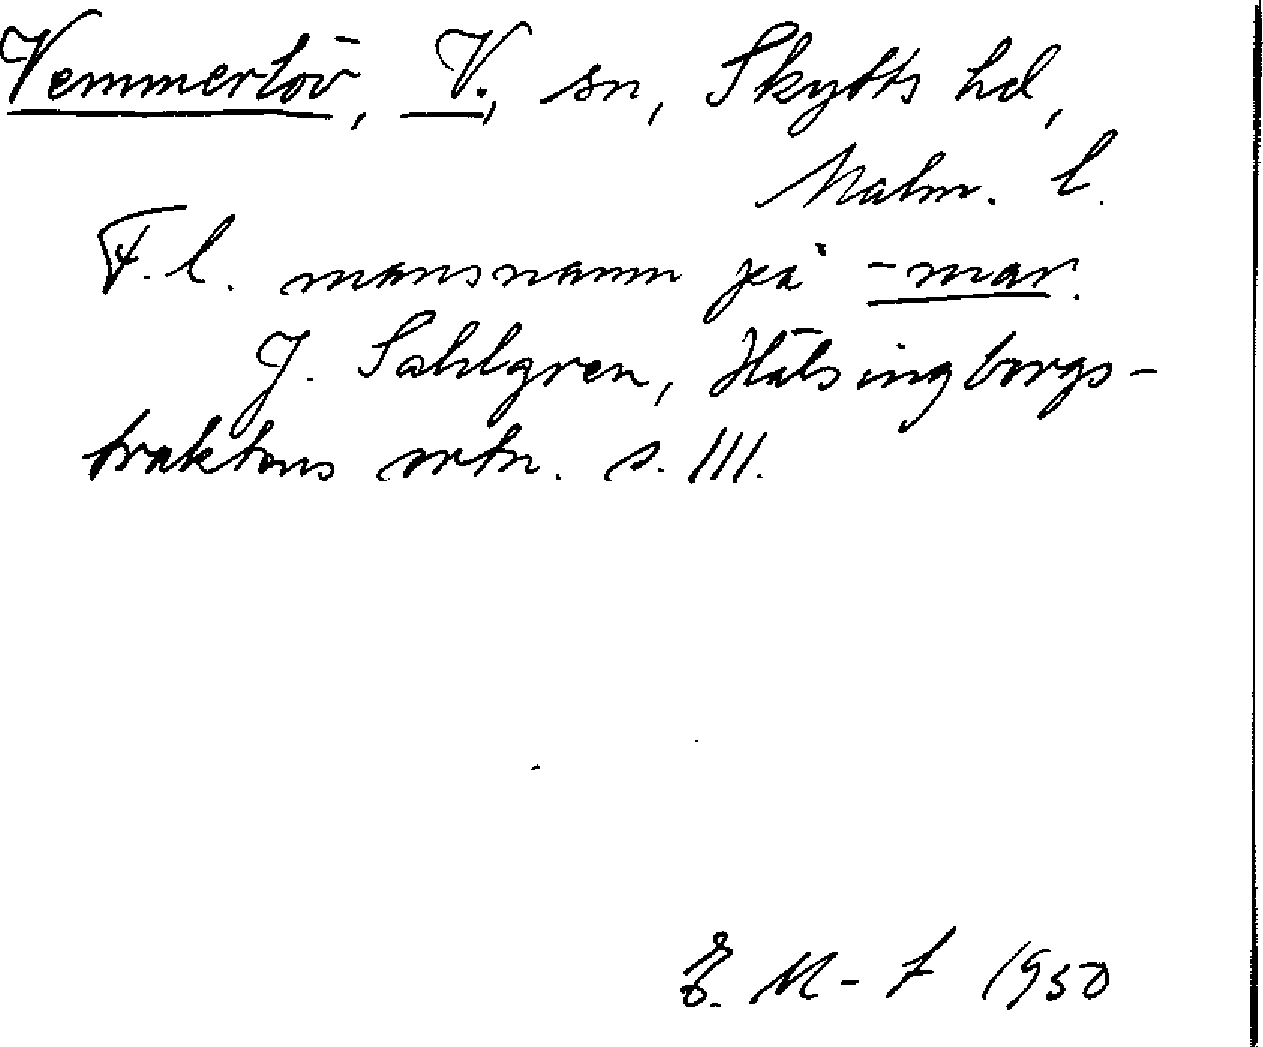 Vemmerlöv, V., sn, Skytts hd,
Malm. l.
F.l. mansnamn på -mar.
J. Sahlgren, Hälsingborgs-
traktens ortn. s. 111.
E. M-f 1950